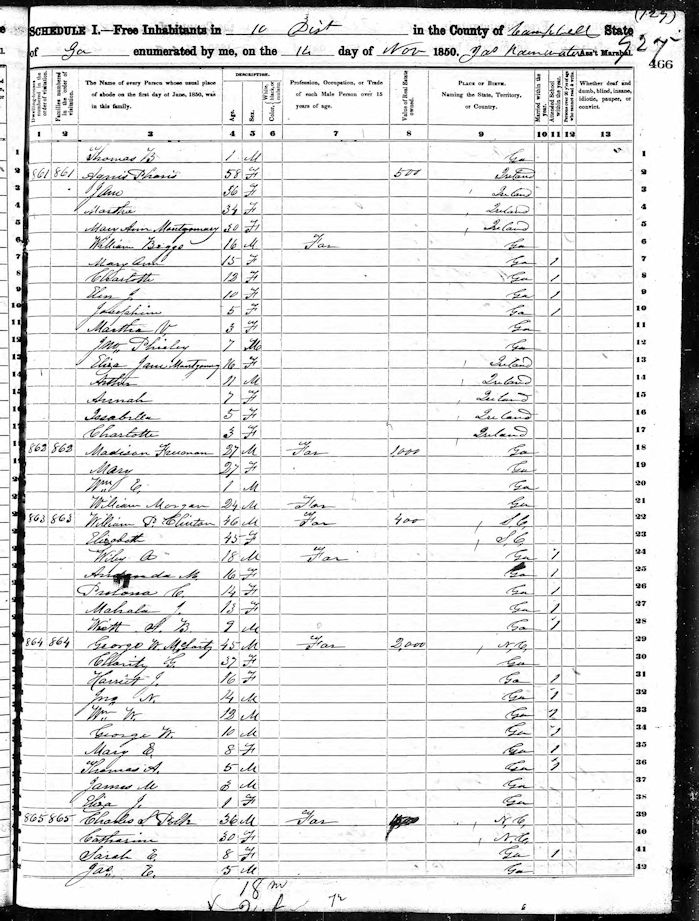 (127)
SCHEDULE I.—Free Inhabitants in 10 Dist in the County of Campbell State
of Ga enumerated by me, on the 14 day of Nov 1850. Jas Rainwater Ass't Marshal.
927
466
Dwelling-houses numbered in the order of visitation.
Families numbered in the order of visitation.
The Name of every Person whose usual place of abode on the first day of June, 1850, was in this family.
DESCRIPTION.
Age.
Sex.
Color, White, black, or mulatto.
Profession, Occupation, or Trade of each Male Person over 15 years of age.
Value of Real Estate owned.
PLACE OF BIRTH. Naming the State, Territory, or Country.
Married within the year.
Attended School within the year.
Persons over 20 y'rs of age who cannot read & write.
Whether deaf and dumb, blind, insane, idiotic, pauper, or convict.
1 2 3 4 5 6 7 8 9 10 11 12 13
1 Thomas B 1 M Ga 1
2 861 861 Agnis 58 F 500 Ireland 2
3 Jane 36 F Ireland 3
4 Martha 34 F Ireland 4
5 Mary Ann Montgomary 30 F Ireland 5
6 William Beggs 16 M Far Ga 6
7 Mary Ann 15 F Ga 1 7
8 Charlotte 12 F Ga 1 8
9 Elen J. 10 F Ga 1 9
10 Josephine 5 F Ga 1 10
11 Martha V 3 F Ga 11
12 Jno 7 M Ga 12
13 Eliza Jane Montgomary 16 F Ireland 13
14 Arther 11 M Ireland 14
15 Annah 7 F Ireland 15
16 Issabella 5 F Ireland 16
17 Charlotte 3 F Ireland 17
18 862 862 Madison Freeman 27 M Far 1000 Ga 18
19 Mary 27 F Ga 19
20 Wm E. 1 M Ga 20
21 William Morgan 24 M Far Ga 21
22 863 863 William P Clinton 46 M Far 400 S.C. 22
23 Elizabeth 45 F S.C. 23
24 Wiley A 18 M Far Ga 1 24
25 M. 16 F Ga 1 25
26 C. 14 F Ga 1 26
27 Mahala J. 13 F Ga 1 27
28 B 9 M Ga 1 28
29 864 864 George W. McLarty 45 M Far 2,000 N.C. 29
30 Charity G. 37 F Ga 30
31 Harriet J. 16 F Ga 1 31
32 Jno N. 14 M Ga 1 32
33 Wm W. 12 M Ga 1 33
34 George W. 10 M Ga 1 34
35 Mary E. 8 F Ga 1 35
36 Thomas A. 5 M Ga 1 36
37 James M 3 M Ga 37
38 Eliza J. 1 F Ga 38
39 865 865 Charles S Polk 36 M Far N.C. 39
40 Catharine 30 F N.C. 40
41 Sarah E. 8 F Ga 1 41
42 Jas E. 5 M Ga 42
18 m